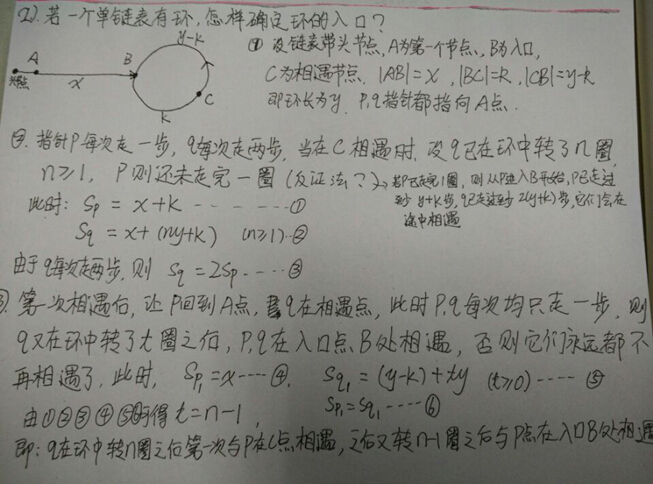 2). 若一个单链表有环,怎样确定环的入口?
y-k
① 设链表带头节点, A为第一个节点, B为入口,
A
B
头节点
x
C
k
C为相遇节点. |AB|=x, |BC|=k, |CB|=y-k
即环长为y. P,q指针都指向A点.
②. 指针P每次走一步, q每次走两步, 当在C相遇时, 设q已在环中转了n圈,
n≥1, P则还未走完一圈 (反证法?)→若P已走完1圈, 则从P进入B开始, P已走过
至少y+k步, q已走过至少2(y+k)步, 它们会在
途中相遇
此时: Sp = x+k ------- ①
Sq = x+(ny+k) (n≥1)--②
由于q每次走两步, 则 Sq = 2Sp ---- ③
③. 第一次相遇后, 让P回到A点, q在相遇点, 此时P,q每次均只走一步, 则
q又在环中转了t圈之后, P,q在入口点B处相遇, 否则它们永远都不
再相遇了, 此时, Sp1=x----④, Sq1 = (y-k)+ty (t≥0)---- ⑤
Sp1=Sq1 ----⑥
由①②③④⑤⑥可得t=n-1,
即: q在环中转n圈之后第一次与P在C点相遇, 之后又转n-1圈之后与P点在入口B处相遇